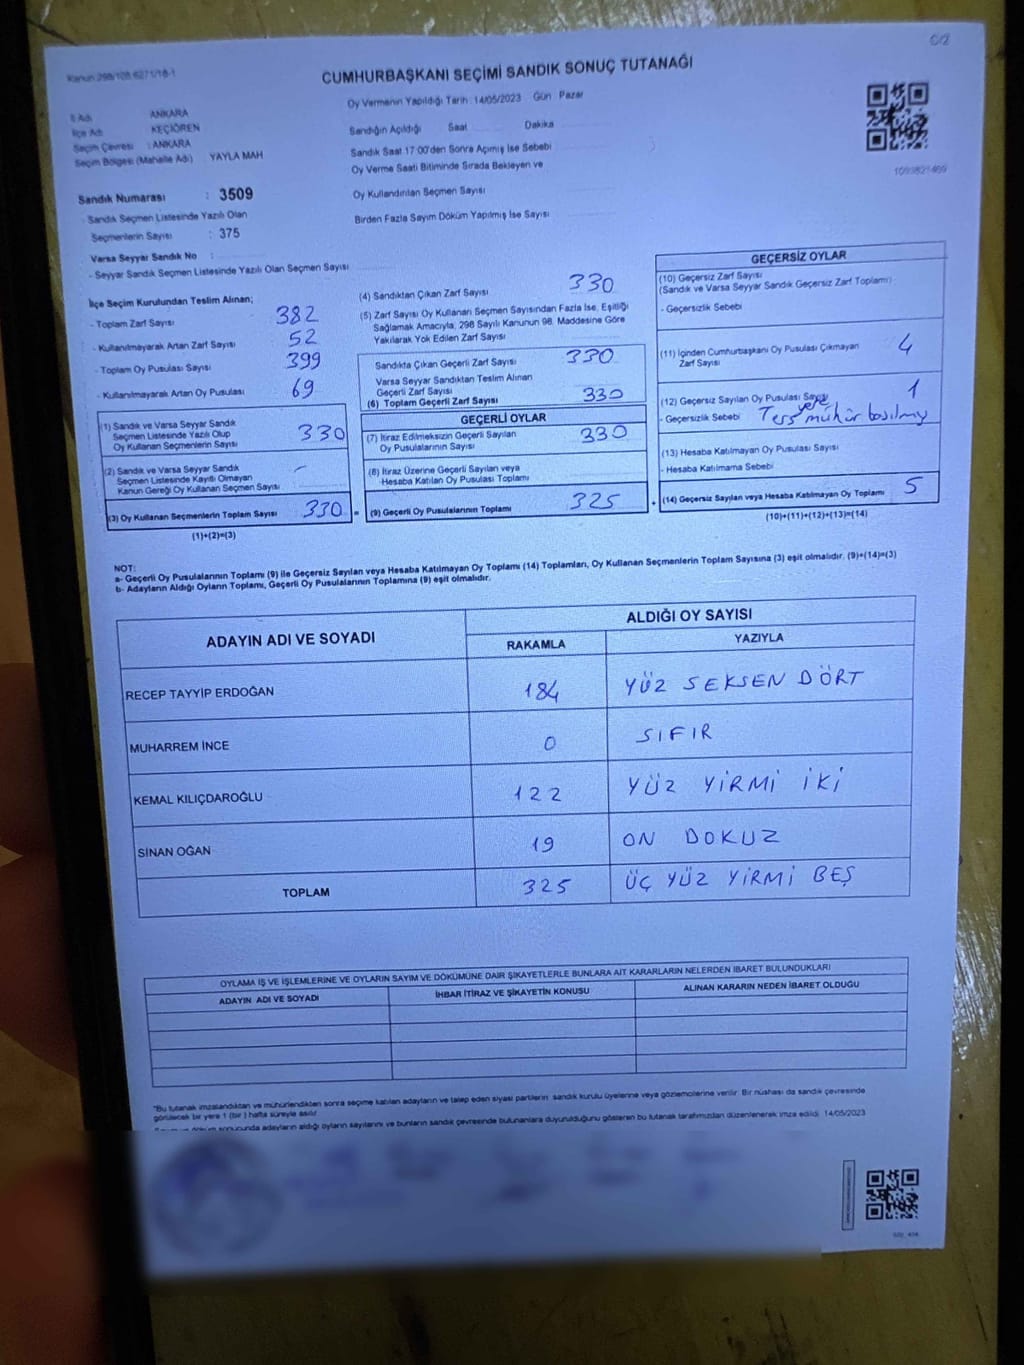 C/2
Kanun 298/108 6271/18-1
CUMHURBAŞKANI SEÇİMİ SANDIK SONUÇ TUTANAĞI
İl Adı ANKARA
İlçe Adı KEÇİÖREN
Seçim Çevresi : ANKARA
Seçim Bölgesi (Mahalle Adı) YAYLA MAH
Oy Vermenin Yapıldığı Tarih : 14/05/2023 Gün Pazar
Sandığın Açıldığı Saat Dakika
Sandık Saat 17:00'den Sonra Açımış İse Sebebi
Oy Verme Saati Bitiminde Sırada Bekleyen ve
Oy Kullandırılan Seçmen Sayısı
Birden Fazla Sayım Döküm Yapılmış İse Sayısı
Sandık Numarası : 3509
- Sandık Seçmen Listesinde Yazılı Olan
Seçmenlerin Sayısı : 375
Varsa Seyyar Sandık No :
- Seyyar Sandık Seçmen Listesinde Yazılı Olan Seçmen Sayısı
İlçe Seçim Kurulundan Teslim Alınan;
- Toplam Zarf Sayısı 382
- Kullanılmayarak Artan Zarf Sayısı 52
- Toplam Oy Pusulası Sayısı 399
- Kullanılmayarak Artan Oy Pusulası 69
(1) Sandık ve Varsa Seyyar Sandık
Seçmen Listesinde Yazılı Olup
Oy Kullanan Seçmenlerin Sayısı 330
(2) Sandık ve Varsa Seyyar Sandık
Seçmen Listesinde Kayıtlı Olmayan
Kanun Gereği Oy Kullanan Seçmen Sayısı -
(3) Oy Kullanan Seçmenlerin Toplam Sayısı 330 =
(1)+(2)=(3)
(4) Sandıktan Çıkan Zarf Sayısı 330
(5) Zarf Sayısı Oy Kullanan Seçmen Sayısından Fazla İse, Eşitliği
Sağlamak Amacıyla, 298 Sayılı Kanunun 98. Maddesine Göre
Yakılarak Yok Edilen Zarf Sayısı
Sandıkta Çıkan Geçerli Zarf Sayısı 330
Varsa Seyyar Sandıktan Teslim Alınan
Geçerli Zarf Sayısı
(6) Toplam Geçerli Zarf Sayısı 330
GEÇERLİ OYLAR
(7) İtiraz Edilmeksizin Geçerli Sayılan
Oy Pusulalarının Sayısı 330
(8) İtiraz Üzerine Geçerli Sayılan veya
Hesaba Katılan Oy Pusulası Toplamı
(9) Geçerli Oy Pusulalarının Toplamı 325 +
GEÇERSİZ OYLAR
(10) Geçersiz Zarf Sayısı
(Sandık ve Varsa Seyyar Sandık Geçersiz Zarf Toplamı)
- Geçersizlik Sebebi
(11) İçinden Cumhurbaşkanı Oy Pusulası Çıkmayan
Zarf Sayısı 4
(12) Geçersiz Sayılan Oy Pusulası Sayısı 1
- Geçersizlik Sebebi Ters yere mühür basılmış
(13) Hesaba Katılmayan Oy Pusulası Sayısı
- Hesaba Katılmama Sebebi
(14) Geçersiz Sayılan veya Hesaba Katılmayan Oy Toplamı 5
(10)+(11)+(12)+(13)=(14)
NOT:
a- Geçerli Oy Pusulalarının Toplamı (9) ile Geçersiz Sayılan veya Hesaba Katılmayan Oy Toplamı (14) Toplamları, Oy Kullanan Seçmenlerin Toplam Sayısına (3) eşit olmalıdır. (9)+(14)=(3)
b- Adayların Aldığı Oyların Toplamı, Geçerli Oy Pusulalarının Toplamına (9) eşit olmalıdır.
ADAYIN ADI VE SOYADI
ALDIĞI OY SAYISI
RAKAMLA YAZIYLA
RECEP TAYYİP ERDOĞAN 184 YÜZ SEKSEN DÖRT
MUHARREM İNCE 0 SIFIR
KEMAL KILIÇDAROĞLU 122 YÜZ YİRMİ İKİ
SİNAN OĞAN 19 ON DOKUZ
TOPLAM 325 ÜÇ YÜZ YİRMİ BEŞ
OYLAMA İŞ VE İŞLEMLERİNE VE OYLARIN SAYIM VE DÖKÜMÜNE DAİR ŞİKAYETLERLE BUNLARA AİT KARARLARIN NELERDEN İBARET BULUNDUKLARI
ADAYIN ADI VE SOYADI İHBAR İTİRAZ VE ŞİKAYETİN KONUSU ALINAN KARARIN NEDEN İBARET OLDUĞU
*Bu tutanak imzalandıktan ve mühürlendikten sonra seçime katılan adayların ve talep eden siyasi partilerin sandık kurulu üyelerine veya gözlemcilerine verilir. Bir nüshası da sandık çevresinde
görülecek bir yere 1 (bir) hafta süreyle asılır.
sonucunda adayların aldığı oyların sayılarını ve bunların sandık çevresinde bulunanlara duyurulduğunu gösteren bu tutanak tarafımızdan düzenlenerek imza edildi. 14/05/2023